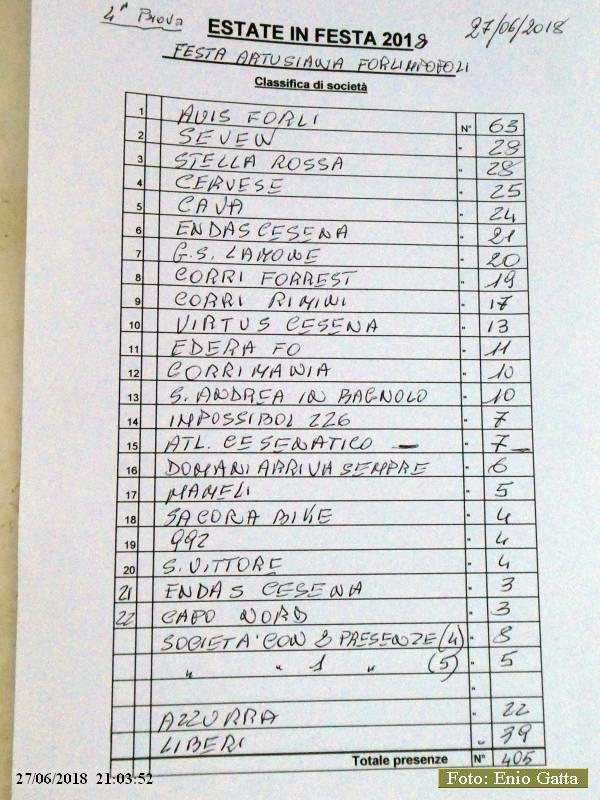 4ª Prova
27/06/2018
ESTATE IN FESTA 2018
FESTA ARTUSIANA FORLIMPOPOLI
Classifica di società
1 AVIS FORLI N° 63
2 SEVEN " 29
3 STELLA ROSSA " 28
4 CERVESE " 25
5 CAVA " 24
6 ENDAS CESENA " 21
7 G.S. LAMONE " 20
8 CORRI FORREST " 19
9 CORRI RIMINI " 17
10 VIRTUS CESENA " 13
11 EDERA FO " 11
12 CORRIMANIA " 10
13 S. ANDREA IN BAGNOLO " 10
14 IMPOSSIBOL 226 " 7
15 ATL. CESENATICO — " 7 —
16 DOMANI ARRIVA SEMPRE " 6
17 MAMELI " 5
18 SACORA BIKE " 4
19 992 " 4
20 S. VITTORE " 4
21 ENDAS CESENA " 3
22 CAPO NORD " 3
SOCIETA' CON 2 PRESENZE (4) " 8
" " 1 " (5) " 5
"
AZZURRA " 22
LIBERI " 39
Totale presenze N° 405
27/06/2018 21:03:52
Foto: Enio Gatta